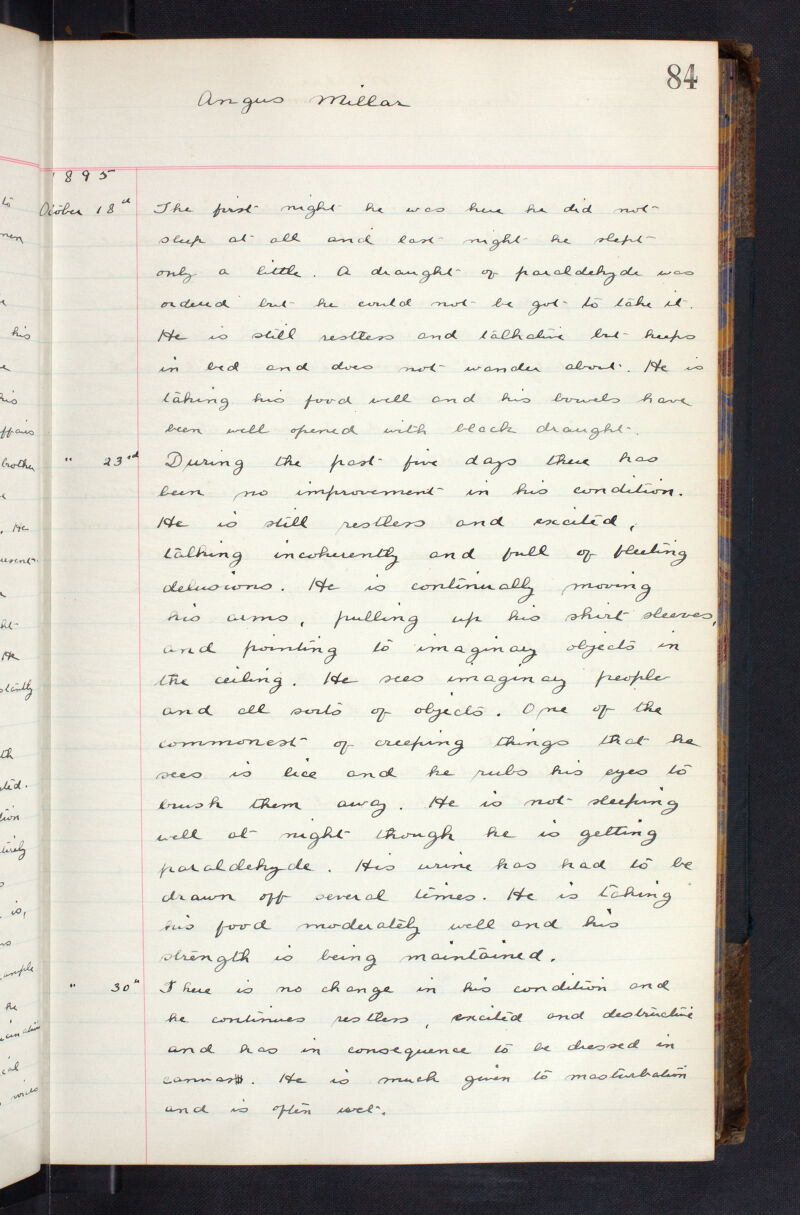 84
Angus Millar
1895
October 18th
The first night he was here he did not
sleep at all and last night he slept
only a little. A draught of paraldehyde was
ordered but he could not be got to take it.
He is still restless and talkative but keeps
in bed and does not wander about. He is
taking his food well and his bowels have
been well opened with black draught.
" 23rd During the past five days there has
been no improvement in his condition.
He is still restless and excited,
talking incoherently and full of fleeting
delusions. He is continually moving
his arms, pulling up his shirt sleeves,
and pointing to imaginary objects in
the ceiling. He sees imaginary people
and all sorts of objects. One of the
commonest of creeping things that he
sees is lice and he rubs his eyes to
brush them away. He is not sleeping
well at night though he is getting
paraldehyde. His urine has had to be
drawn off several times. He is taking
his food moderately well and his
strength is being maintained.
" 30th There is no change in his condition and
he continues restless, excited and destructive
and has in consequence to be dressed in
canvas. He is much given to masturbation
and is often wet.